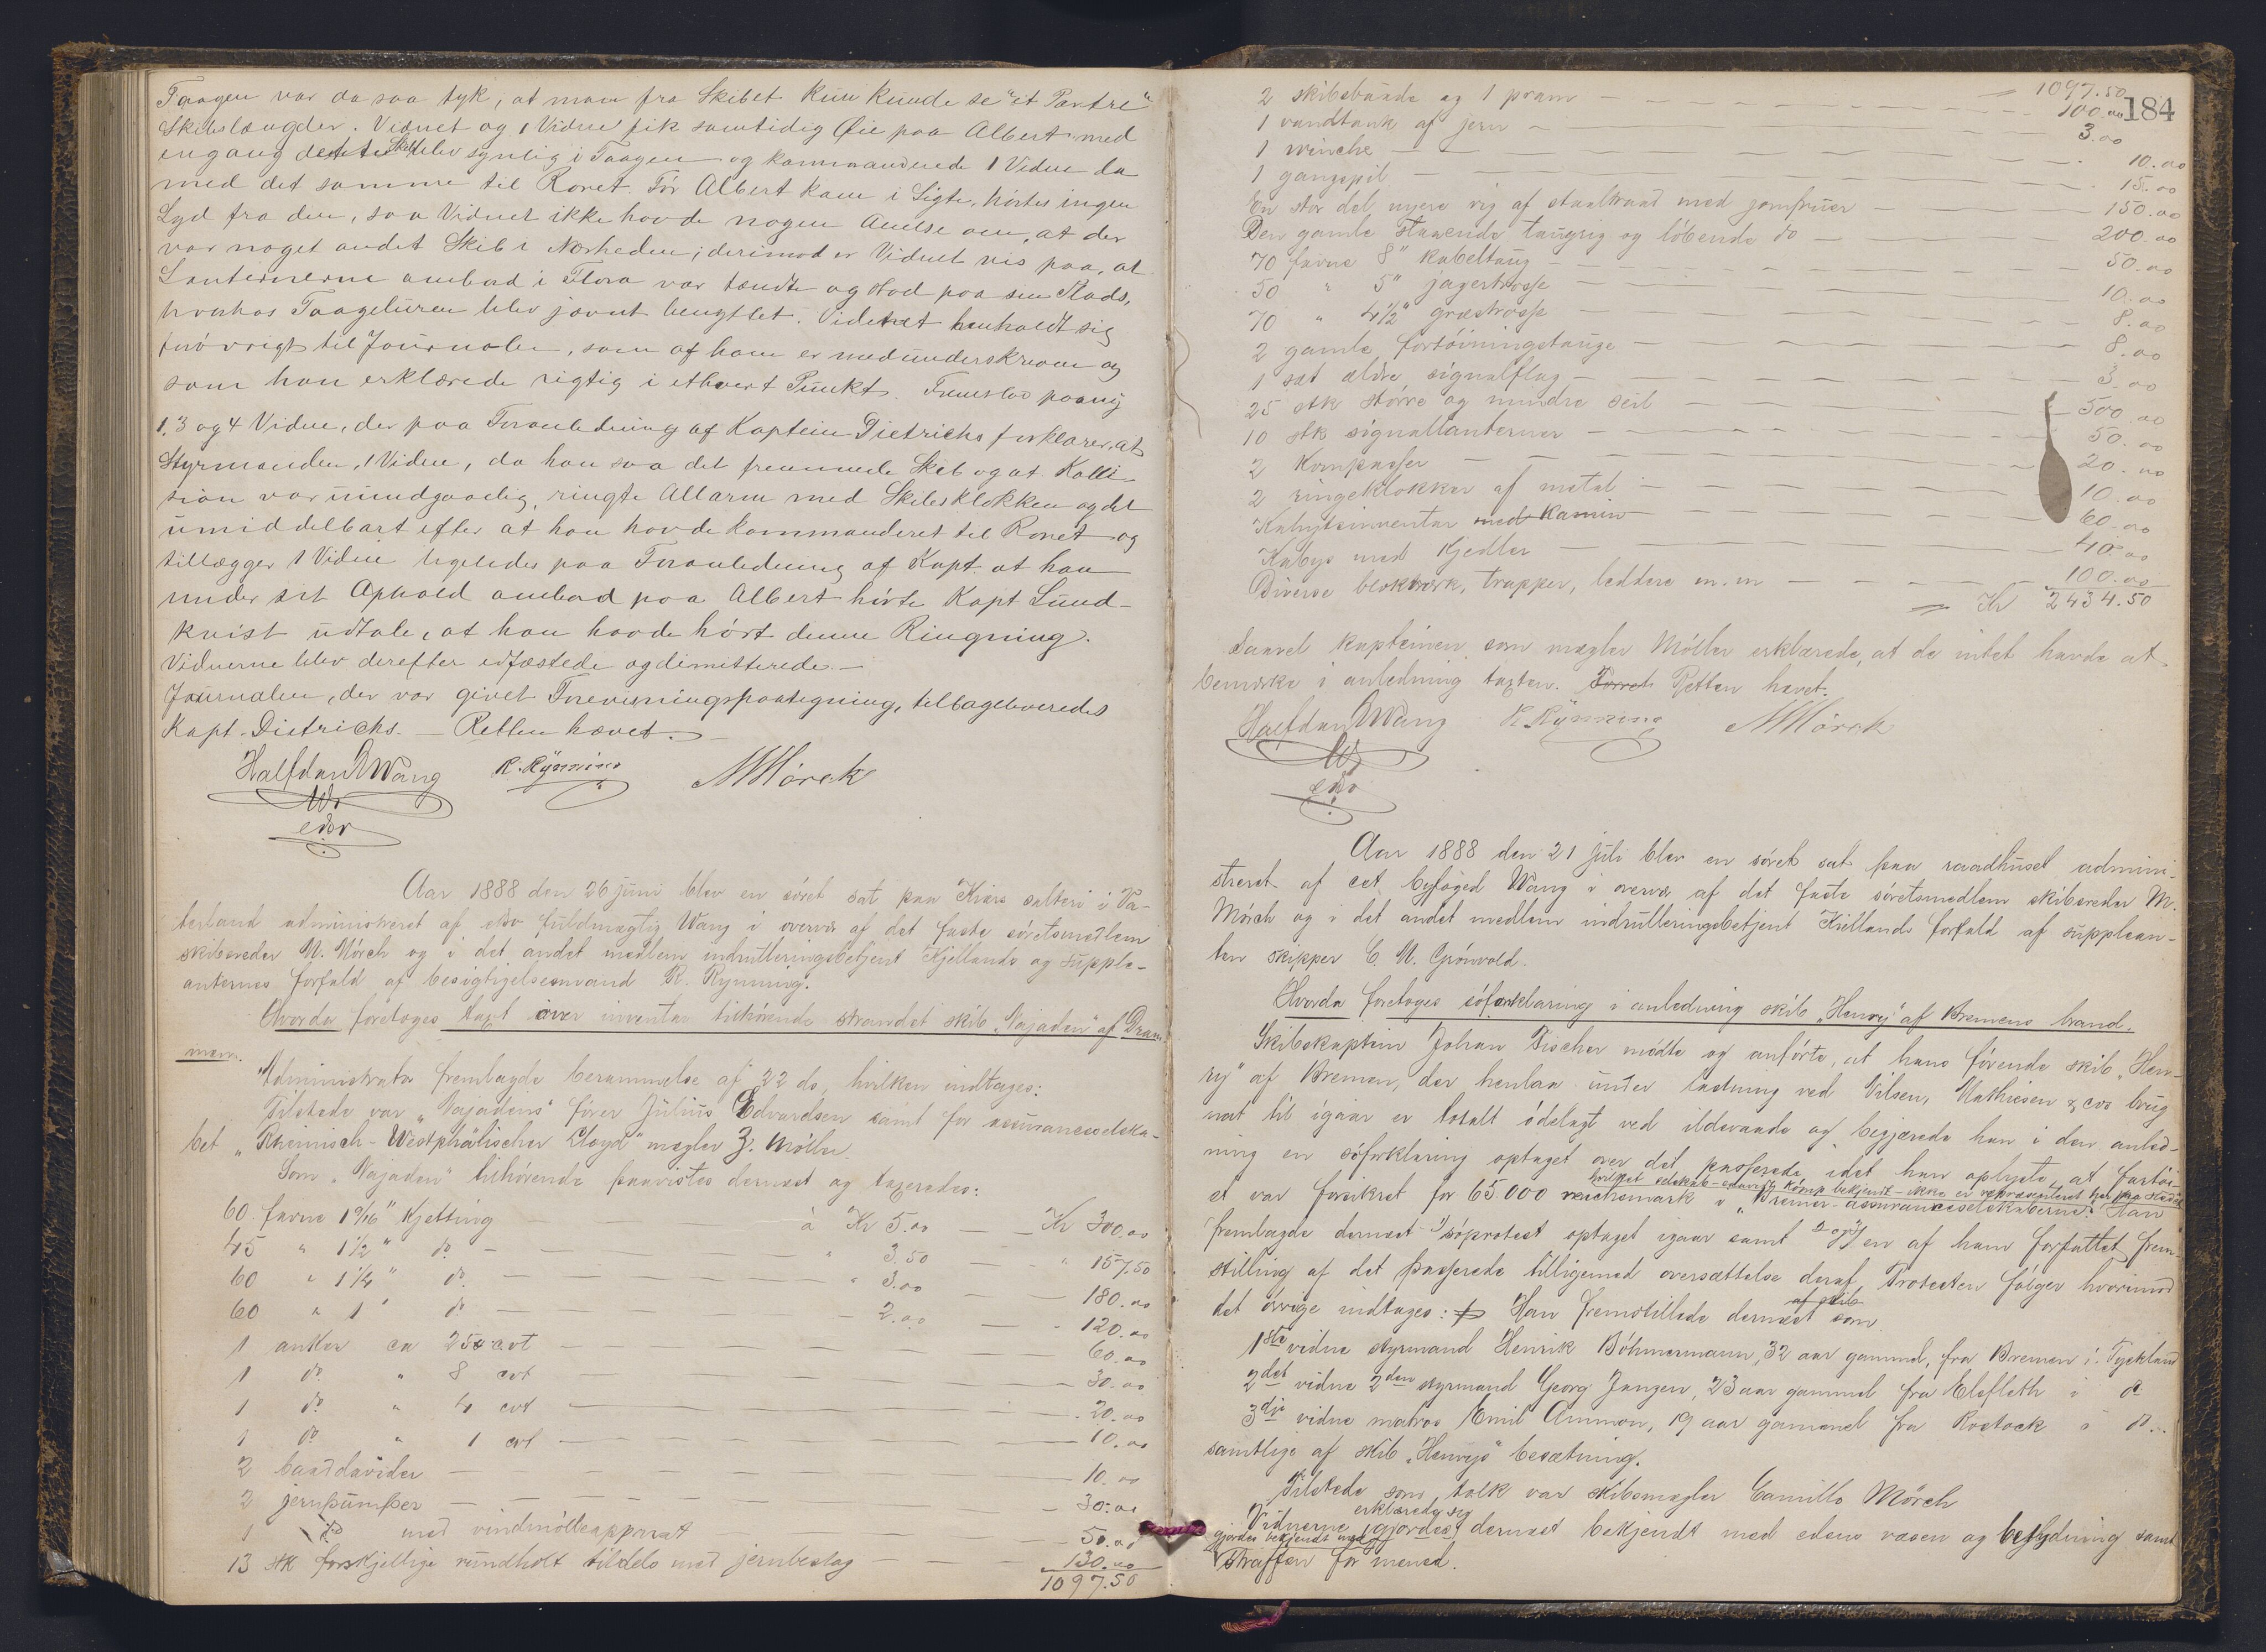 Taagen var da saa tyk, at man fra Skibet kun kunde se "et Par tre"
Skibslængder. Vidnet og 1 Vidne fik samtidig Øie paa Albert med
engang dette Skib blev synlig i Taagen og kommanderede 1 Vidne da
med det samme til Roret. Før Albert kom i Sigte, hørtes ingen
Lyd fra den, saa Vidnet ikke havde nogen Anelse om, at der
var noget andet Skib i Nærheden; derimod er Vidnet vis paa, at
Lanternerne ombord i Flora var tændte og stod paa sin Plads,
hvorhos Taageluren blev jævnt benyttet. Vidnet henholdt sig
forøvrigt til Journalen, som af ham er medunderskreven og
som han erklærede rigtig i ethvert Punkt. Fremstod paany
1. 3 og 4 Vidne, der paa Foranledning af Kaptein Dietrichs forklarer, at
Styrmanden, 1 Vidne, da han saa det fremmede Skib og at Kolli-
sion var uundgaaelig, ringte Allarm med Skibsklokken og det
umiddelbart efter at han havde kommanderet til Roret og
tillægger 1 Vidne ligeledes paa Foranledning af Kapt. at han
under sit Ophold ombord paa Albert hørte Kapt Lund-
kvist udtale, at han havde hørt denne Ringning.
Vidnerne blev derefter edfæstede og dimitterede. —
Journalen, der var givet Forevisningspaategning, tilbageleveredes
Kapt. Dietrichs. — Retten hævet. —
Halfdan Wang R. Rynning M Mørch
edsv
Aar 1888 den 26 juni blev en søret sat paa Kiærs salteri i Va-
terland administreret af edsv fuldmægtig Wang i overvær af det faste søretsmedlem
skibsreder M. Mørch og i det andet medlem indrulleringsbetjent Kjellands og supple-
anternes forfald af besigtigelsesmand R. Rynning.
Hvorda foretoges taxt over inventar tilhørende strandet skib "Najaden" af Dram-
men.
Administrator fremlagde berammelse af 22 ds, hvilken indtages:
Tilstede var "Najadens" fører Julius Edvardsen samt for assuranceselska-
bet "Rheinisch-Westphälischer Lloyd" mægler J. Møller.
Som "Najaden" tilhørende paavistes dernæst og taxeredes:
60 favne 1 9/16" Kjetting — à Kr 5.00 — Kr 300.00
45 " 1 1/2" do — " 3.50 — " 157.50
60 " 1 1/4" do. — " 3.00 — 180.00
60 " 1" do — 2.00 — 120.00
1 anker ca 25 cvt — 60.00
1 do " 8 cvt — 30.00
1 do " 4 cvt — 20.00
1 do " 1 cvt — 10.00
2 baaddavider — 10.00
2 jernpumper — 30.00
1 do med vindmølleapparat — 50.00
13 stk forskjellige rundholt tildels med jernbeslag — 130.00
1097.50
184
1097.50
2 skibsbaade og 1 pram — 100.00
1 vandtank af jern — 3.00
1 winche — 10.00
1 gangspil — 15.00
En stor del nyere rig af staaltraad med jomfruer — 150.00
Den gamle staaende taugrig og løbende do — 200.00
70 favne 8" kabeltaug — 50.00
50 " 5" jagertrosse — 10.00
70 " 4 1/2" græstrosse — 8.00
2 gamle fortøiningstauge — 8.00
1 sæt ældre signalflag — 3.00
25 stk større og mindre seil — 500.00
10 stk signallanterner — 50.00
2 Kompasser — 20.00
2 ringeklokker af metal — 10.00
Kahytsinventar med Kamin — 60.00
Kabys med Kjedler — 40.00
Diverse blokværk, trapper, leddere m.m — 100.00
Kr 2434.50
Saavel kapteinen som mægler Møller erklærede, at de intet havde at
bemærke i anledning taxten. Retten hævet.
Halfdan Wang R. Rynning M Mørch
edsv
Aar 1888 den 21 juli blev en søret sat paa raadhuset admini-
streret af cst. byfoged Wang i overvær af det faste søretsmedlem skibsreder M.
Mørch og i det andet medlem indrulleringsbetjent Kiellands forfald af supplean-
ten skipper C. M. Grönvold.
Hvorda foretoges søforklaring i anledning skib "Henry" af Bremens brand.
Skibskaptein Johan Fischer mødte og anførte, at hans førende skib "Hen-
ry" af Bremen, der henlaa under lastning ved Nilsen, Mathiesen & cos brug
nat til igaar er totalt ødelagt ved ildsvaade og begjærede han i den anled-
ning en søforklaring optaget over det passerede idet han oplyste, at fartøi-
et var forsikret for 65.000 reichsmark i "Bremer-assuranceselskaberne". Han
hvilket selskab – saavidt komp bekjendt – ikke er repræsenteret her paa stedet
fremlagde dernæst 1) søprotest optaget igaar samt 2 og 3) en af ham forfattet frem-
stilling af det passerede tilligemed oversættelse deraf. Protesten følger hvorimod
det øvrige indtages: Han fremstillede dernæst som
af skib
1ste vidne styrmand Henrik Böhmermann, 32 aar gammel, fra Bremen i Tyskland
2det vidne 2den styrmand Georg Janzen, 23 aar gammel fra Elsfleth i do
3die vidne matros Emil Ammon, 19 aar gammel fra Rostock i do.
samtlige af skib "Henrys" besætning.
Tilstede som tolk var skibsmægler Camillo Mørch
Vidnerne erklærede sig gjordes dernæst bekjendt med edens væsen og betydning samt
gjordes bekjendt med
straffen for mened.